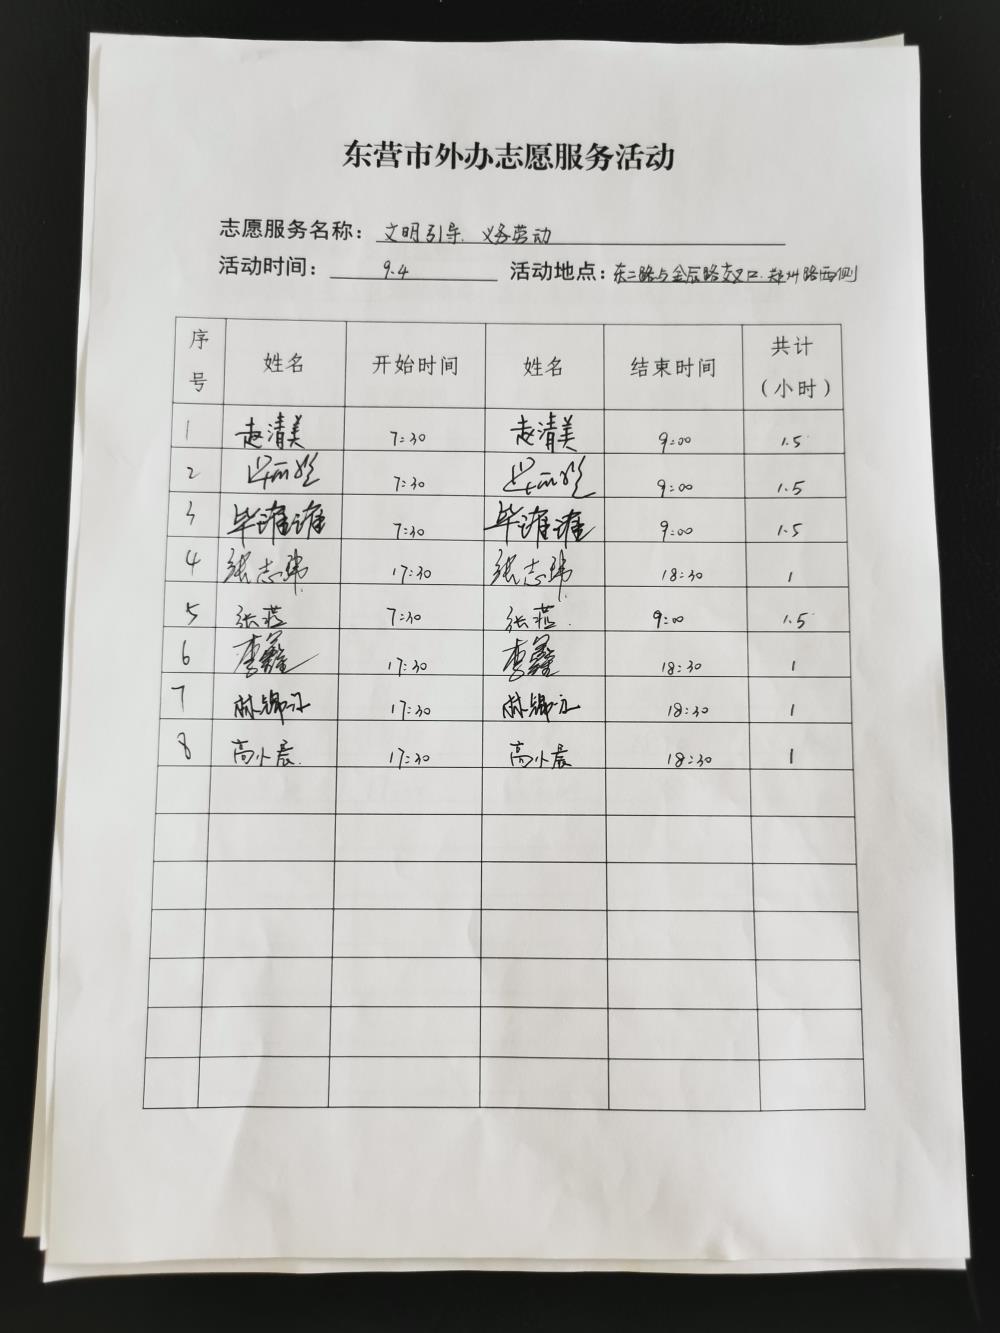 东营市外办志愿服务活动
志愿服务名称：文明引导、义务劳动
活动时间：9.4 活动地点：东二路与金辰路交叉口.郑州路西侧
序号 姓名 开始时间 姓名 结束时间 共计（小时）
1 赵清美 7:30 赵清美 9:00 1.5
2 7:30 9:00 1.5
3 毕谁谁 7:30 毕谁谁 9:00 1.5
4 张志玮 17:30 张志玮 18:30 1
5 张蕊 7:30 张蕊 9:00 1.5
6 李鑫 17:30 李鑫 18:30 1
7 17:30 18:30 1
8 高小晨 17:30 高小晨 18:30 1